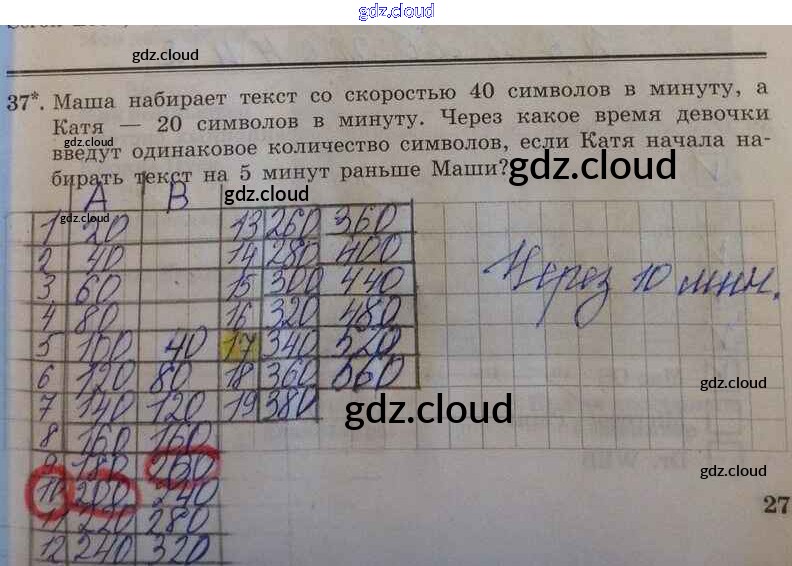 gdz.cloud
gdz.cloud
37*. Маша набирает текст со скоростью 40 символов в минуту, а
Катя — 20 символов в минуту. Через какое время девочки
gdz.cloud
введут одинаковое количество символов, если Катя начала на-
бирать текст на 5 минут раньше Маши?
gdz.cloud
gdz.cloud
A B
gdz.cloud
1 20 13 260 360
2 40 14 280 400
3 60 15 300 440
4 80 16 320 480
5 100 40 17 340 520
6 120 80 18 360 560
7 140 120 19 380
Через 10 мин.
gdz.cloud
gdz.cloud
8 160 160
9 180 200
10 200 240
11 220 280
12 240 320
gdz.cloud
Dr. Web
27